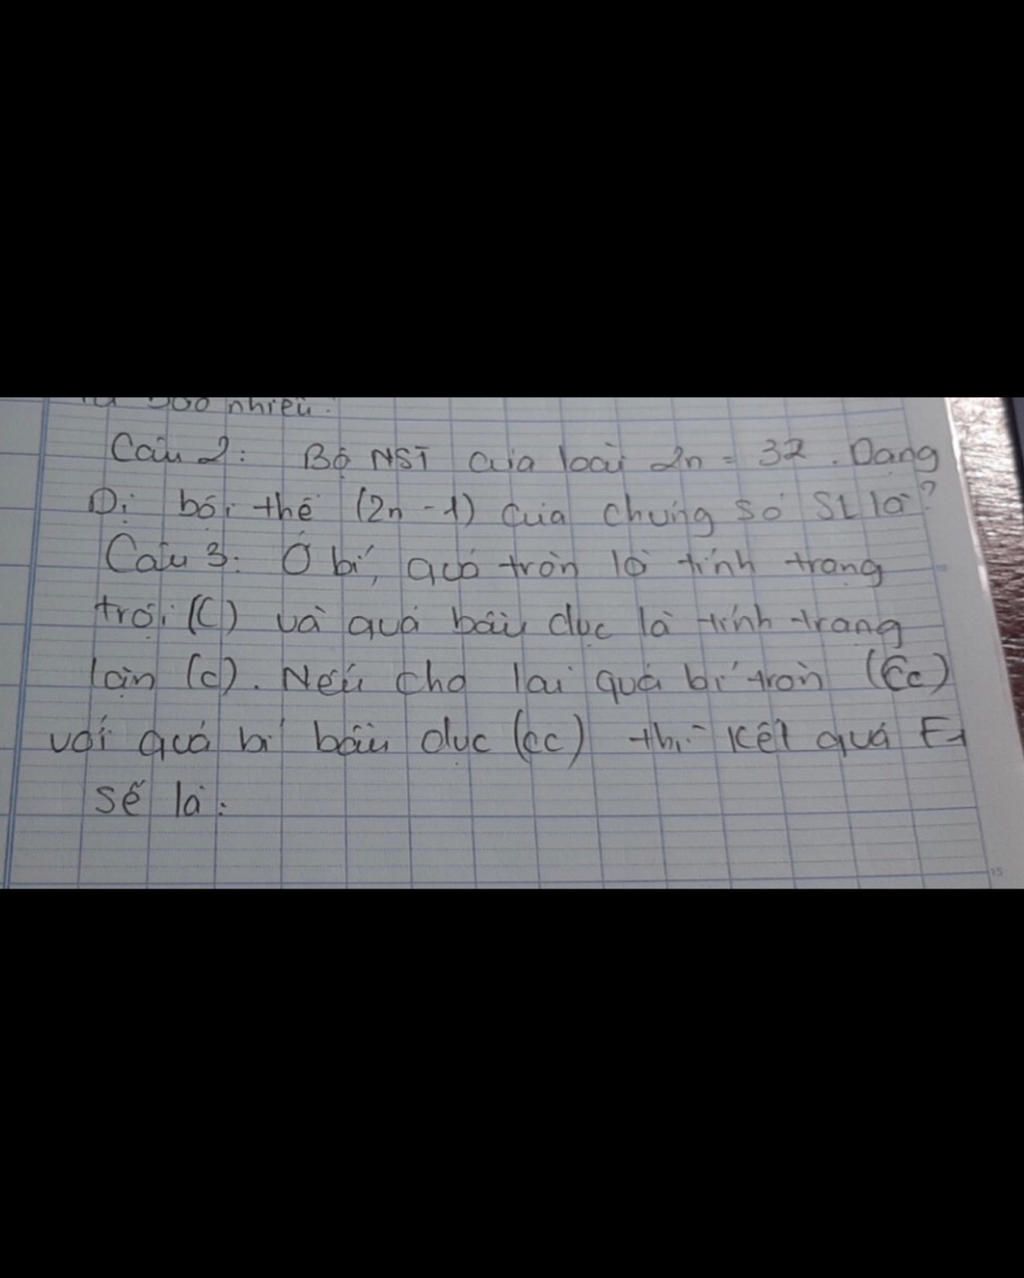 nhiêu.
Câu 2: Bộ NST của loài 2n = 32. Dạng
Dị bội thể (2n - 1) của chúng số SL là?
Câu 3: Ở bí, quả tròn là tính trạng
trội (C) và quả bầu dục là tính trạng
lặn (c). Nếu cho lai quả bí tròn (Cc)
với quả bí bầu dục (cc) thì kết quả F1
sẽ là:
15